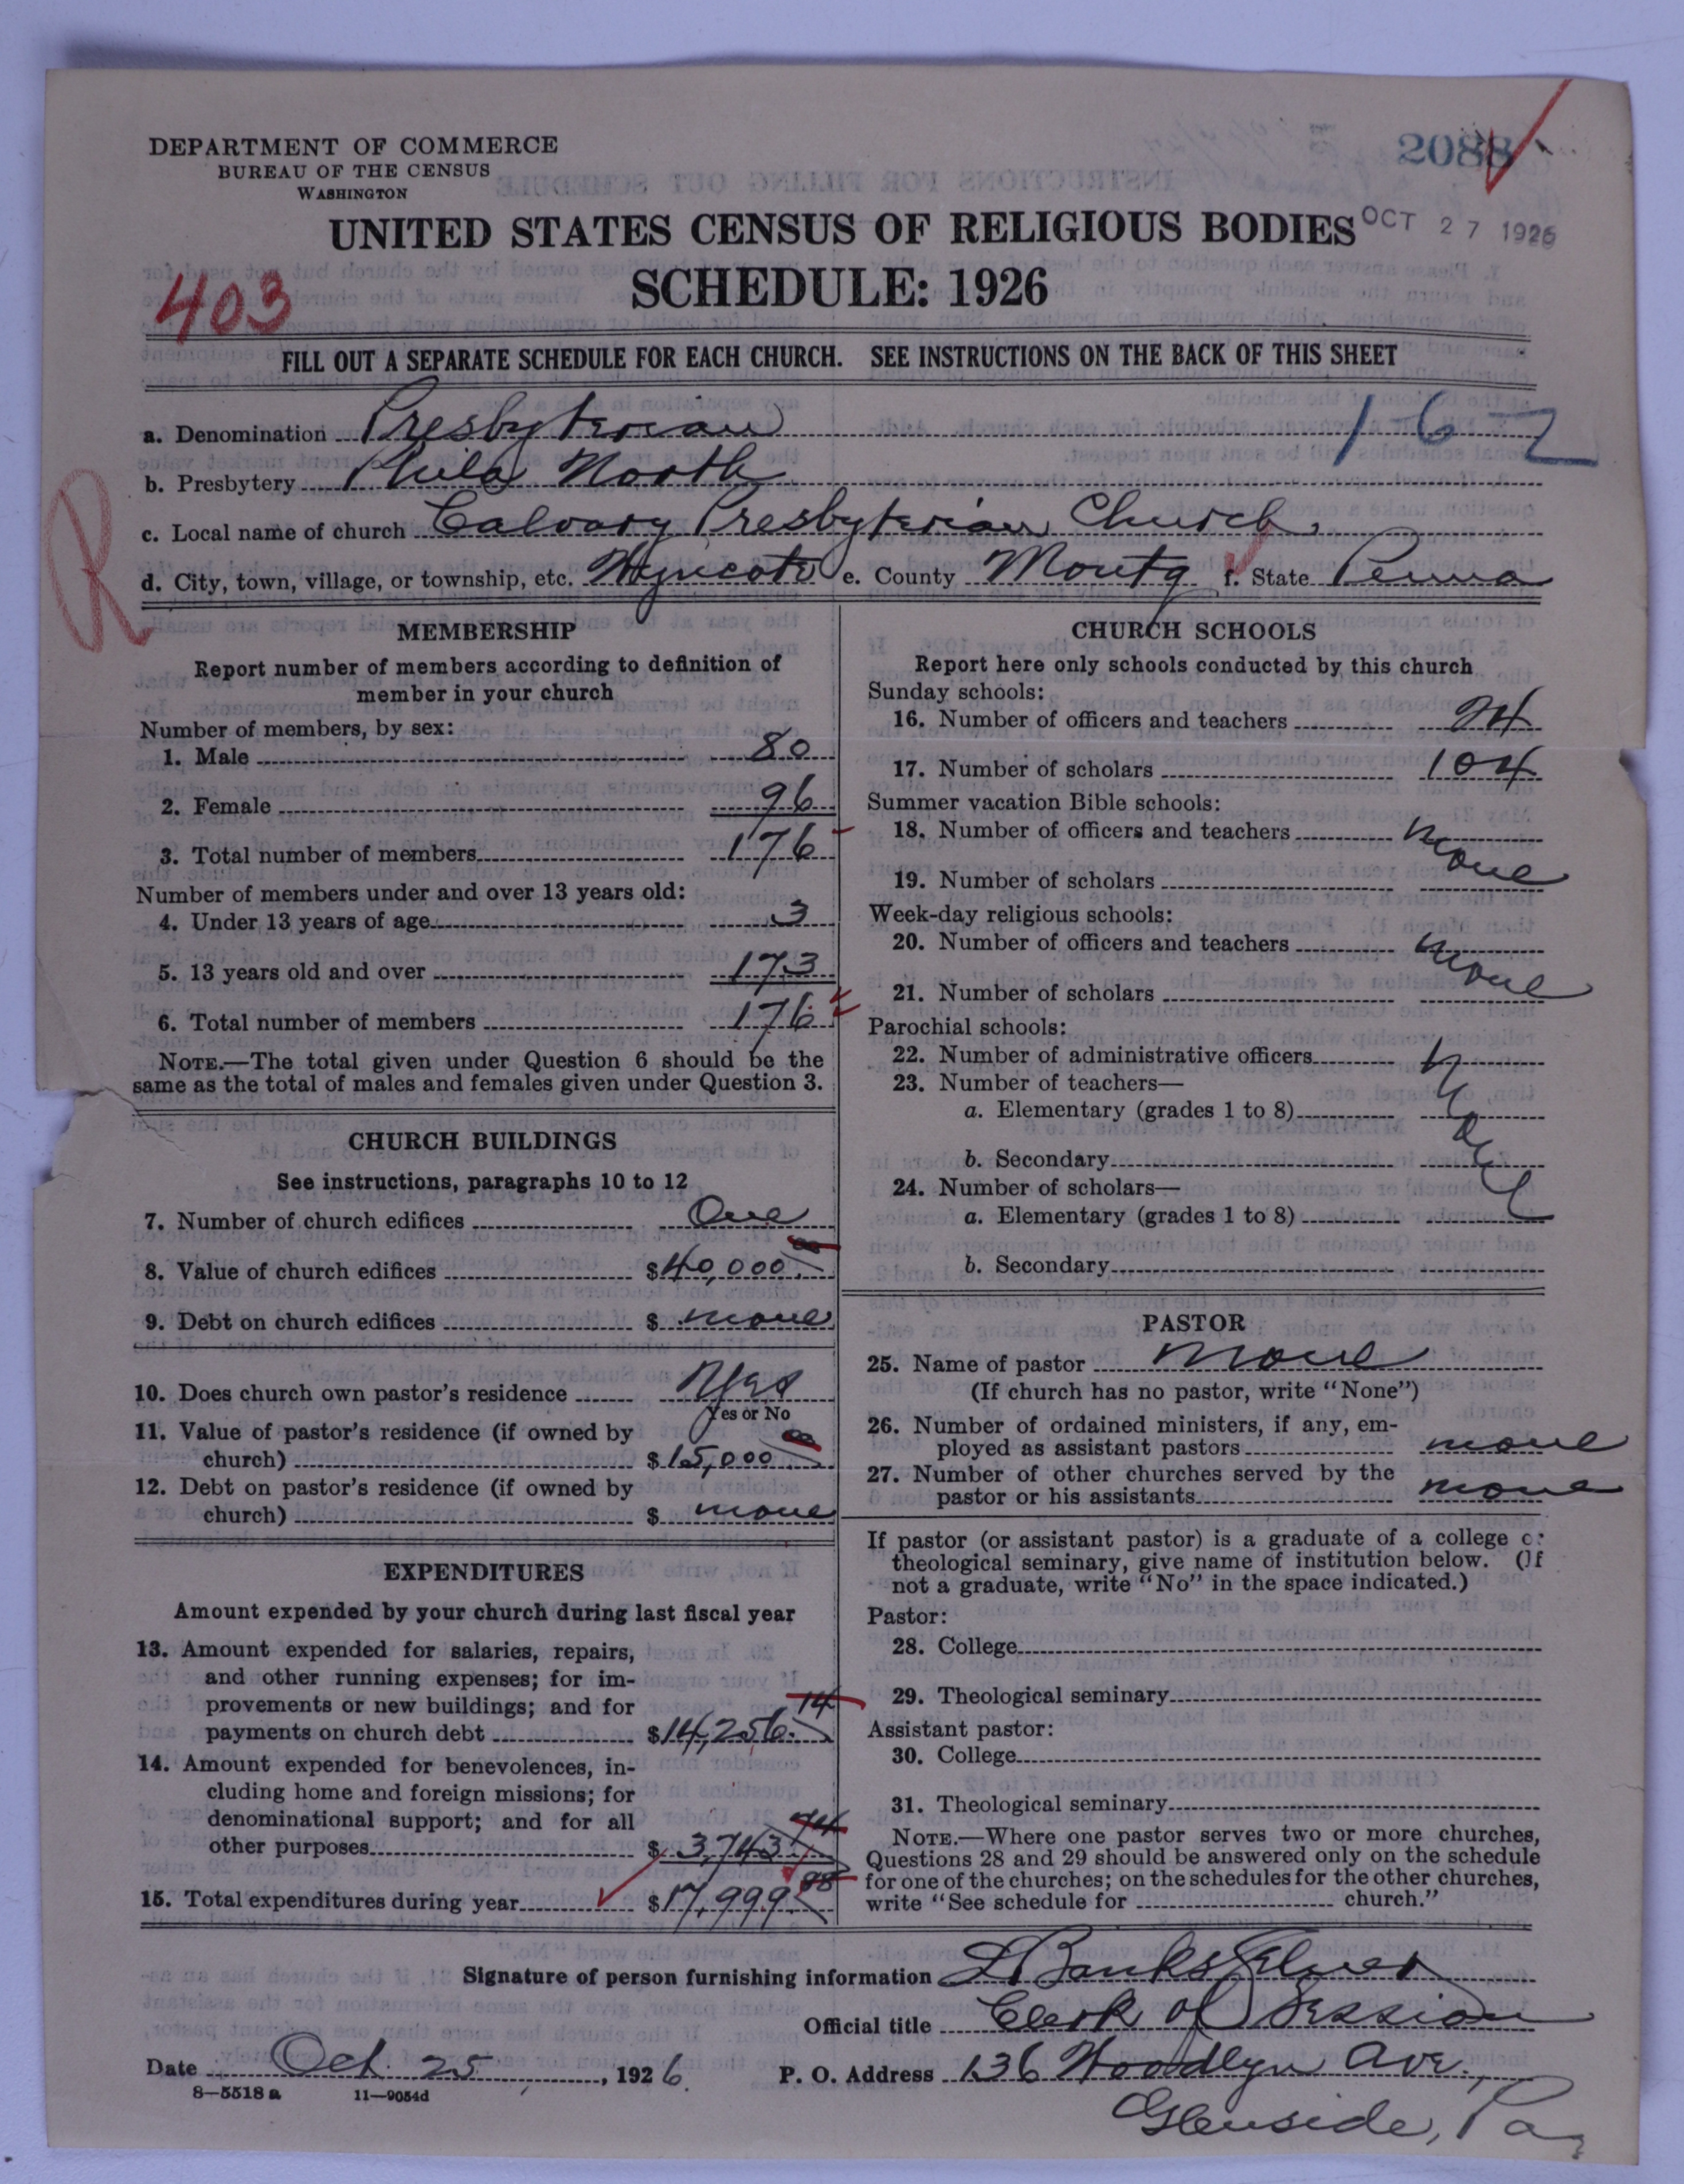 DEPARTMENT OF COMMERCE
BUREAU OF THE CENSUS
WASHINGTON
2088
UNITED STATES CENSUS OF RELIGIOUS BODIES
OCT 27 1926
SCHEDULE: 1926
403
FILL OUT A SEPARATE SCHEDULE FOR EACH CHURCH. SEE INSTRUCTIONS ON THE BACK OF THIS SHEET
a. Denomination Presbyterian 162
b. Presbytery Phila North
R
c. Local name of church Calvary Presbyterian Church
d. City, town, village, or township, etc. Wyncote e. County Montg f. State Penna
MEMBERSHIP
Report number of members according to definition of
member in your church
Number of members, by sex:
1. Male 80
2. Female 96
3. Total number of members 176
Number of members under and over 13 years old:
4. Under 13 years of age 3
5. 13 years old and over 173
6. Total number of members 176
NOTE.—The total given under Question 6 should be the
same as the total of males and females given under Question 3.
CHURCH BUILDINGS
See instructions, paragraphs 10 to 12
7. Number of church edifices One
8. Value of church edifices $40,000.00
9. Debt on church edifices $ none
10. Does church own pastor's residence Yes
Yes or No
11. Value of pastor's residence (if owned by
church) $15,000.00
12. Debt on pastor's residence (if owned by
church) $ none
EXPENDITURES
Amount expended by your church during last fiscal year
13. Amount expended for salaries, repairs,
and other running expenses; for im-
provements or new buildings; and for
payments on church debt $14,256.14
14. Amount expended for benevolences, in-
cluding home and foreign missions; for
denominational support; and for all
other purposes $3,743.74
15. Total expenditures during year $17,999.88
CHURCH SCHOOLS
Report here only schools conducted by this church
Sunday schools:
16. Number of officers and teachers 24
17. Number of scholars 104
Summer vacation Bible schools:
18. Number of officers and teachers None
19. Number of scholars
Week-day religious schools:
20. Number of officers and teachers None
21. Number of scholars
Parochial schools:
22. Number of administrative officers None
23. Number of teachers—
a. Elementary (grades 1 to 8)
b. Secondary
24. Number of scholars—
a. Elementary (grades 1 to 8)
b. Secondary
PASTOR
25. Name of pastor None
(If church has no pastor, write "None")
26. Number of ordained ministers, if any, em-
ployed as assistant pastors none
27. Number of other churches served by the
pastor or his assistants none
If pastor (or assistant pastor) is a graduate of a college or
theological seminary, give name of institution below. (If
not a graduate, write "No" in the space indicated.)
Pastor:
28. College
29. Theological seminary
Assistant pastor:
30. College
31. Theological seminary
NOTE.—Where one pastor serves two or more churches,
Questions 28 and 29 should be answered only on the schedule
for one of the churches; on the schedules for the other churches,
write "See schedule for church."
Signature of person furnishing information Banks
Official title Clerk of Session
Date Oct. 25, 1926 P. O. Address 136 Woodlyn Ave.,
8—5518a 11—9054d
Glenside, Pa